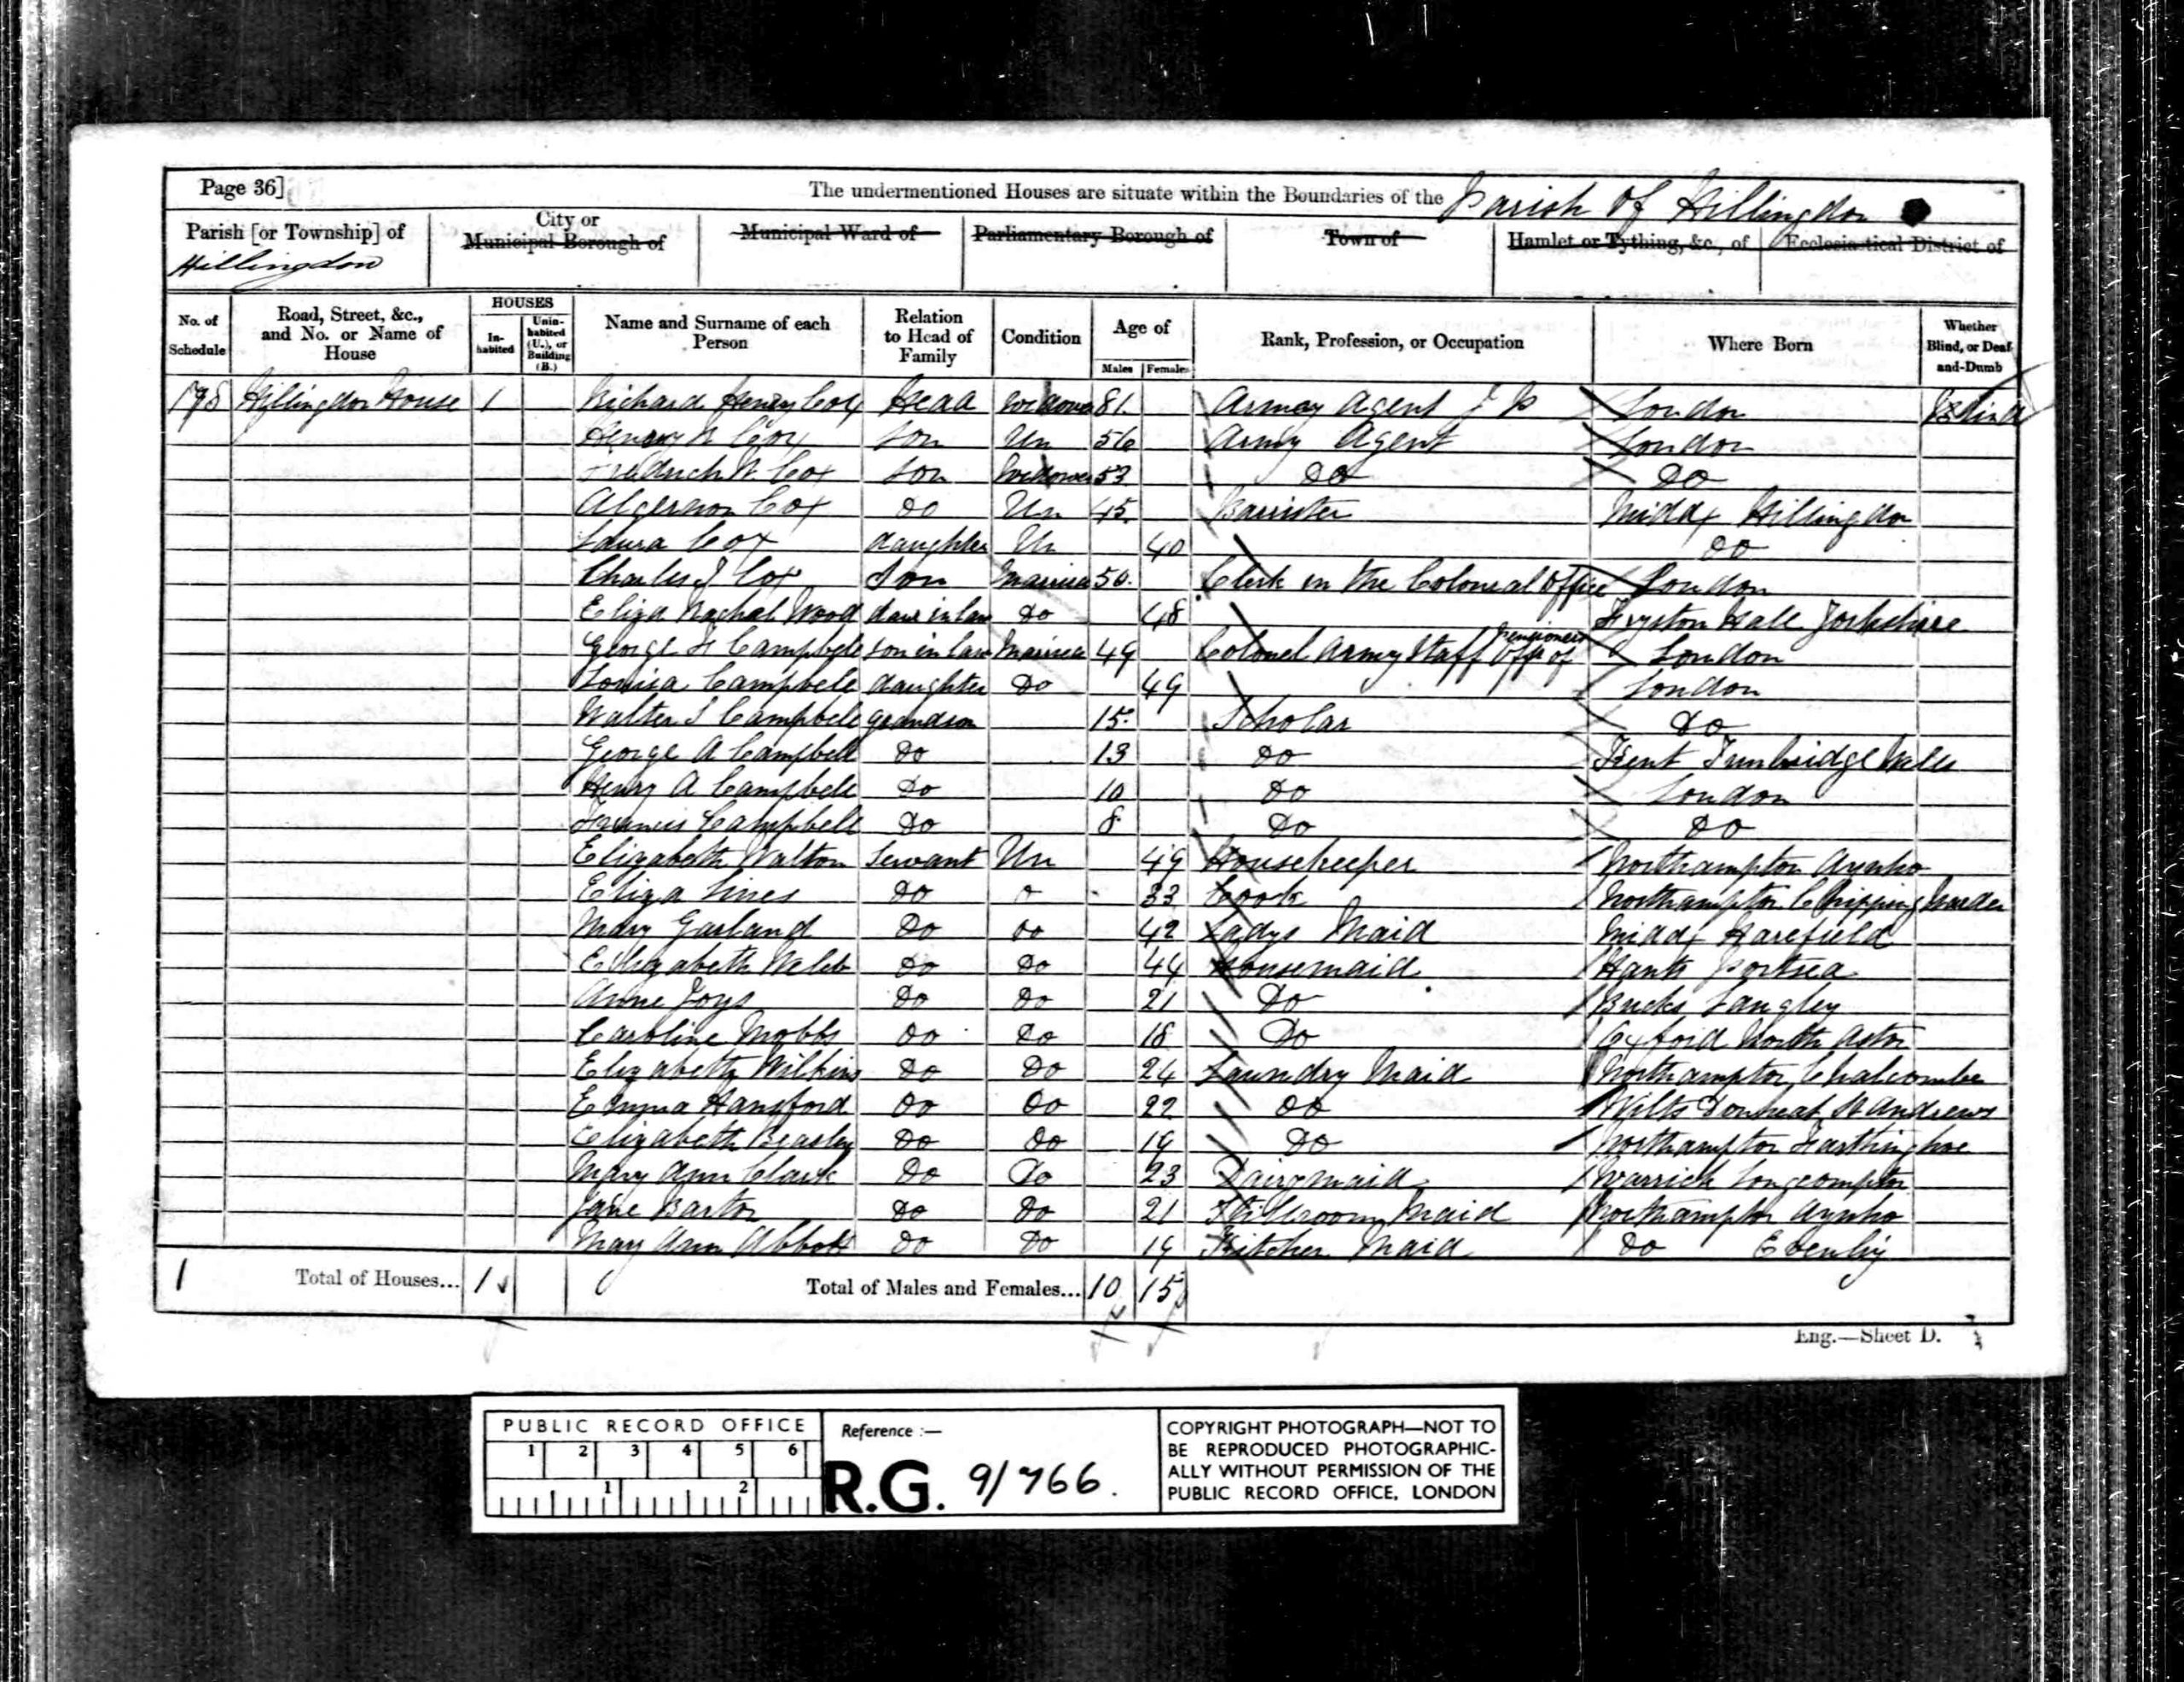 Page 36] The undermentioned Houses are situate within the Boundaries of the Parish of Hillingdon
Parish [or Township] of Hillingdon
City or Municipal Borough of
Municipal Ward of
Parliamentary Borough of
Town of
Hamlet or Tything, &c., of
Ecclesiastical District of
No. of Schedule
Road, Street, &c., and No. or Name of House
HOUSES
In-habited
Unin-habited (U.), or Building (B.)
Name and Surname of each Person
Relation to Head of Family
Condition
Age of
Males Females
Rank, Profession, or Occupation
Where Born
Whether Blind, or Deaf-and-Dumb
198 Hillingdon House 1 Richard Henry Cox Head Widower 81 Army Agent J P London Blind
Henry R Cox Son Un 56 Army Agent London
Frederick W. Cox Son Widower 53 Do Do
Algernon Cox Do Un 45 Barrister Middx Hillingdon
Laura Cox daughter Un 40 Do
Charles J Cox Son Married 50 Clerk in the Colonial Office London
Eliza Rachel Wood daur in law Do 48 Fryston Hall Yorkshire
George H Campbell son in law Married 49 Colonel Army Staff Offr of Pensioners London
Louisa Campbell daughter Do 49 London
Walter S Campbell grandson 15 Scholar Do
George A Campbell Do 13 Do Kent Tunbridge Wells
Henry A Campbell Do 10 Do London
Francis Campbell Do 8 Do Do
Elizabeth Walton Servant Un 49 Housekeeper Northampton Aynho
Eliza Lines Do 33 Cook Northampton Chipping Warden
Mary Garland Do Do 42 Ladys Maid Middx Harefield
Elizabeth Webb Do Do 44 Housemaid Hants Portsea
Anne Joys Do Do 21 Do Bucks Langley
Caroline Mobbs Do Do 18 Do Oxford North Aston
Elizabeth Wilkins Do Do 24 Laundry Maid Northampton Chalcombe
Emma Hansford Do Do 22 Do Wilts Donheat St Andrews
Elizabeth Beasley Do Do 19 Do Northampton Farthinghoe
Mary Ann Clark Do Do 23 Dairymaid Warrick Longcompton
Jane Barton Do Do 21 Stillroom Maid Northampton Aynho
Mary Ann Abbott Do Do 19 Kitchen Maid Do Evenley
1 Total of Houses... 1 Total of Males and Females... 10 15
Eng.—Sheet D.
PUBLIC RECORD OFFICE
1 2 3 4 5 6
1 2
Reference :—
R.G. 9/766.
COPYRIGHT PHOTOGRAPH—NOT TO
BE REPRODUCED PHOTOGRAPHIC-
ALLY WITHOUT PERMISSION OF THE
PUBLIC RECORD OFFICE, LONDON